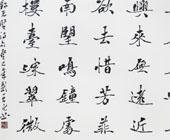 興來無遠近
欲去惜芳菲
南望鳴鐘處
樓臺深翠微